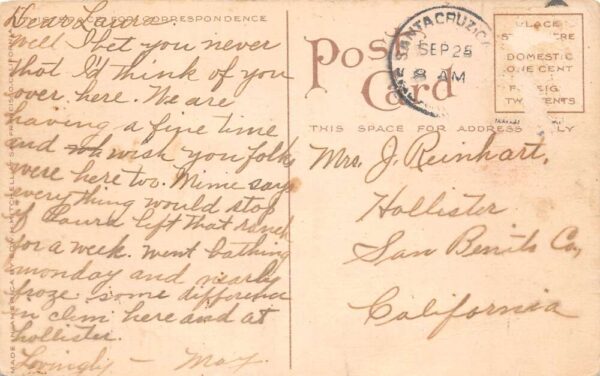 SPACE FOR CORRESPONDENCE
Dear Laura:
Well I bet you never
that I'd think of you
over here. We are
having a fine time
and wish you folks
were here too. Mime says
everything would stop
if Laura left that ranch
for a week. Went bathing
monday and nearly
froze some difference
in clim here and at
Hollister.
Lovingly — May.
Post
Card
SANTA CRUZ
SEP 25
8 AM
PLACE
DOMESTIC
ONE CENT
THIS SPACE FOR ADDRESS
Mrs. J. Reinhart,
Hollister
San Benito Co,
California
MADE IN AMERICA